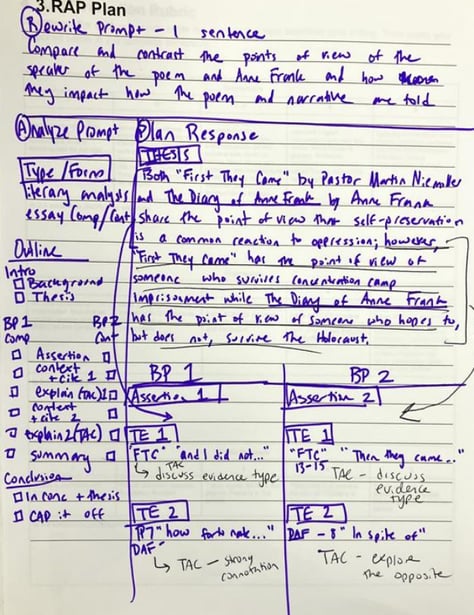 3. RAP Plan
Rewrite Prompt - 1 sentence
Compare and contrast the points of view of the
speaker of the poem and Anne Frank and how
they impact how the poem and narrative are told
Analyze Prompt
Type/Form
literary analysis
essay Comp/Cont
Outline
Intro
Background
Thesis
BP1 BP2
Comp Cont
Assertion
context + cite 1
explain (TAC) 1
context + cite 2
explain 2 (TAC)
summary
Conclusion
In conc + thesis
CAP it off
Plan Response
THESIS
Both "First They Came" by Pastor Martin Niemoller
and The Diary of Anne Frank by Anne Frank
share the point of view that self-preservation
is a common reaction to oppression; however,
"First They Came" has the point of view of
someone who survives concentration camp
imprisonment while The Diary of Anne Frank
has the point of view of someone who hopes to,
but does not, survive the Holocaust.
BP 1
Assertion 1
TE 1
"FTC" "and I did not..."
TAC
discuss evidence type
TE 2
DAF
TAC - strong
connotation
BP 2
Assertion 2
TE 1
"FTC" "Then they came..."
13-15
TAC - discuss
evidence
type
TE 2
DAF - 8 "In spite of"
TAC - explore
the opposite